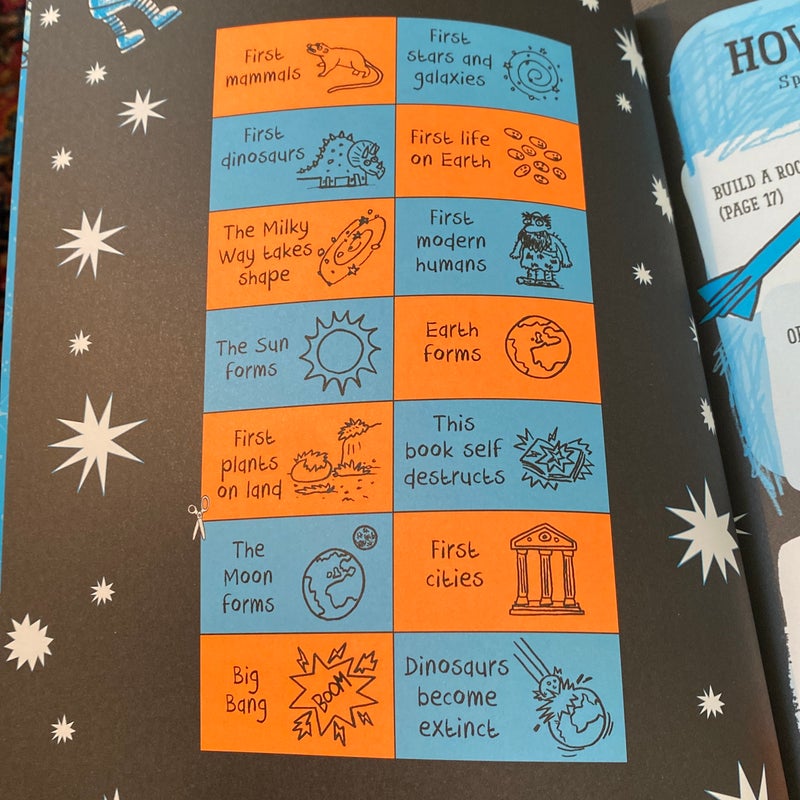 First
mammals
First
stars and
galaxies
First
dinosaurs
First life
on Earth
The Milky
Way takes
shape
First
modern
humans
The Sun
forms
Earth
forms
First
plants
on land
This
book self
destructs
The
Moon
forms
First
cities
Big
Bang
BOOM
Dinosaurs
become
extinct
BUILD A
(PAGE 17)